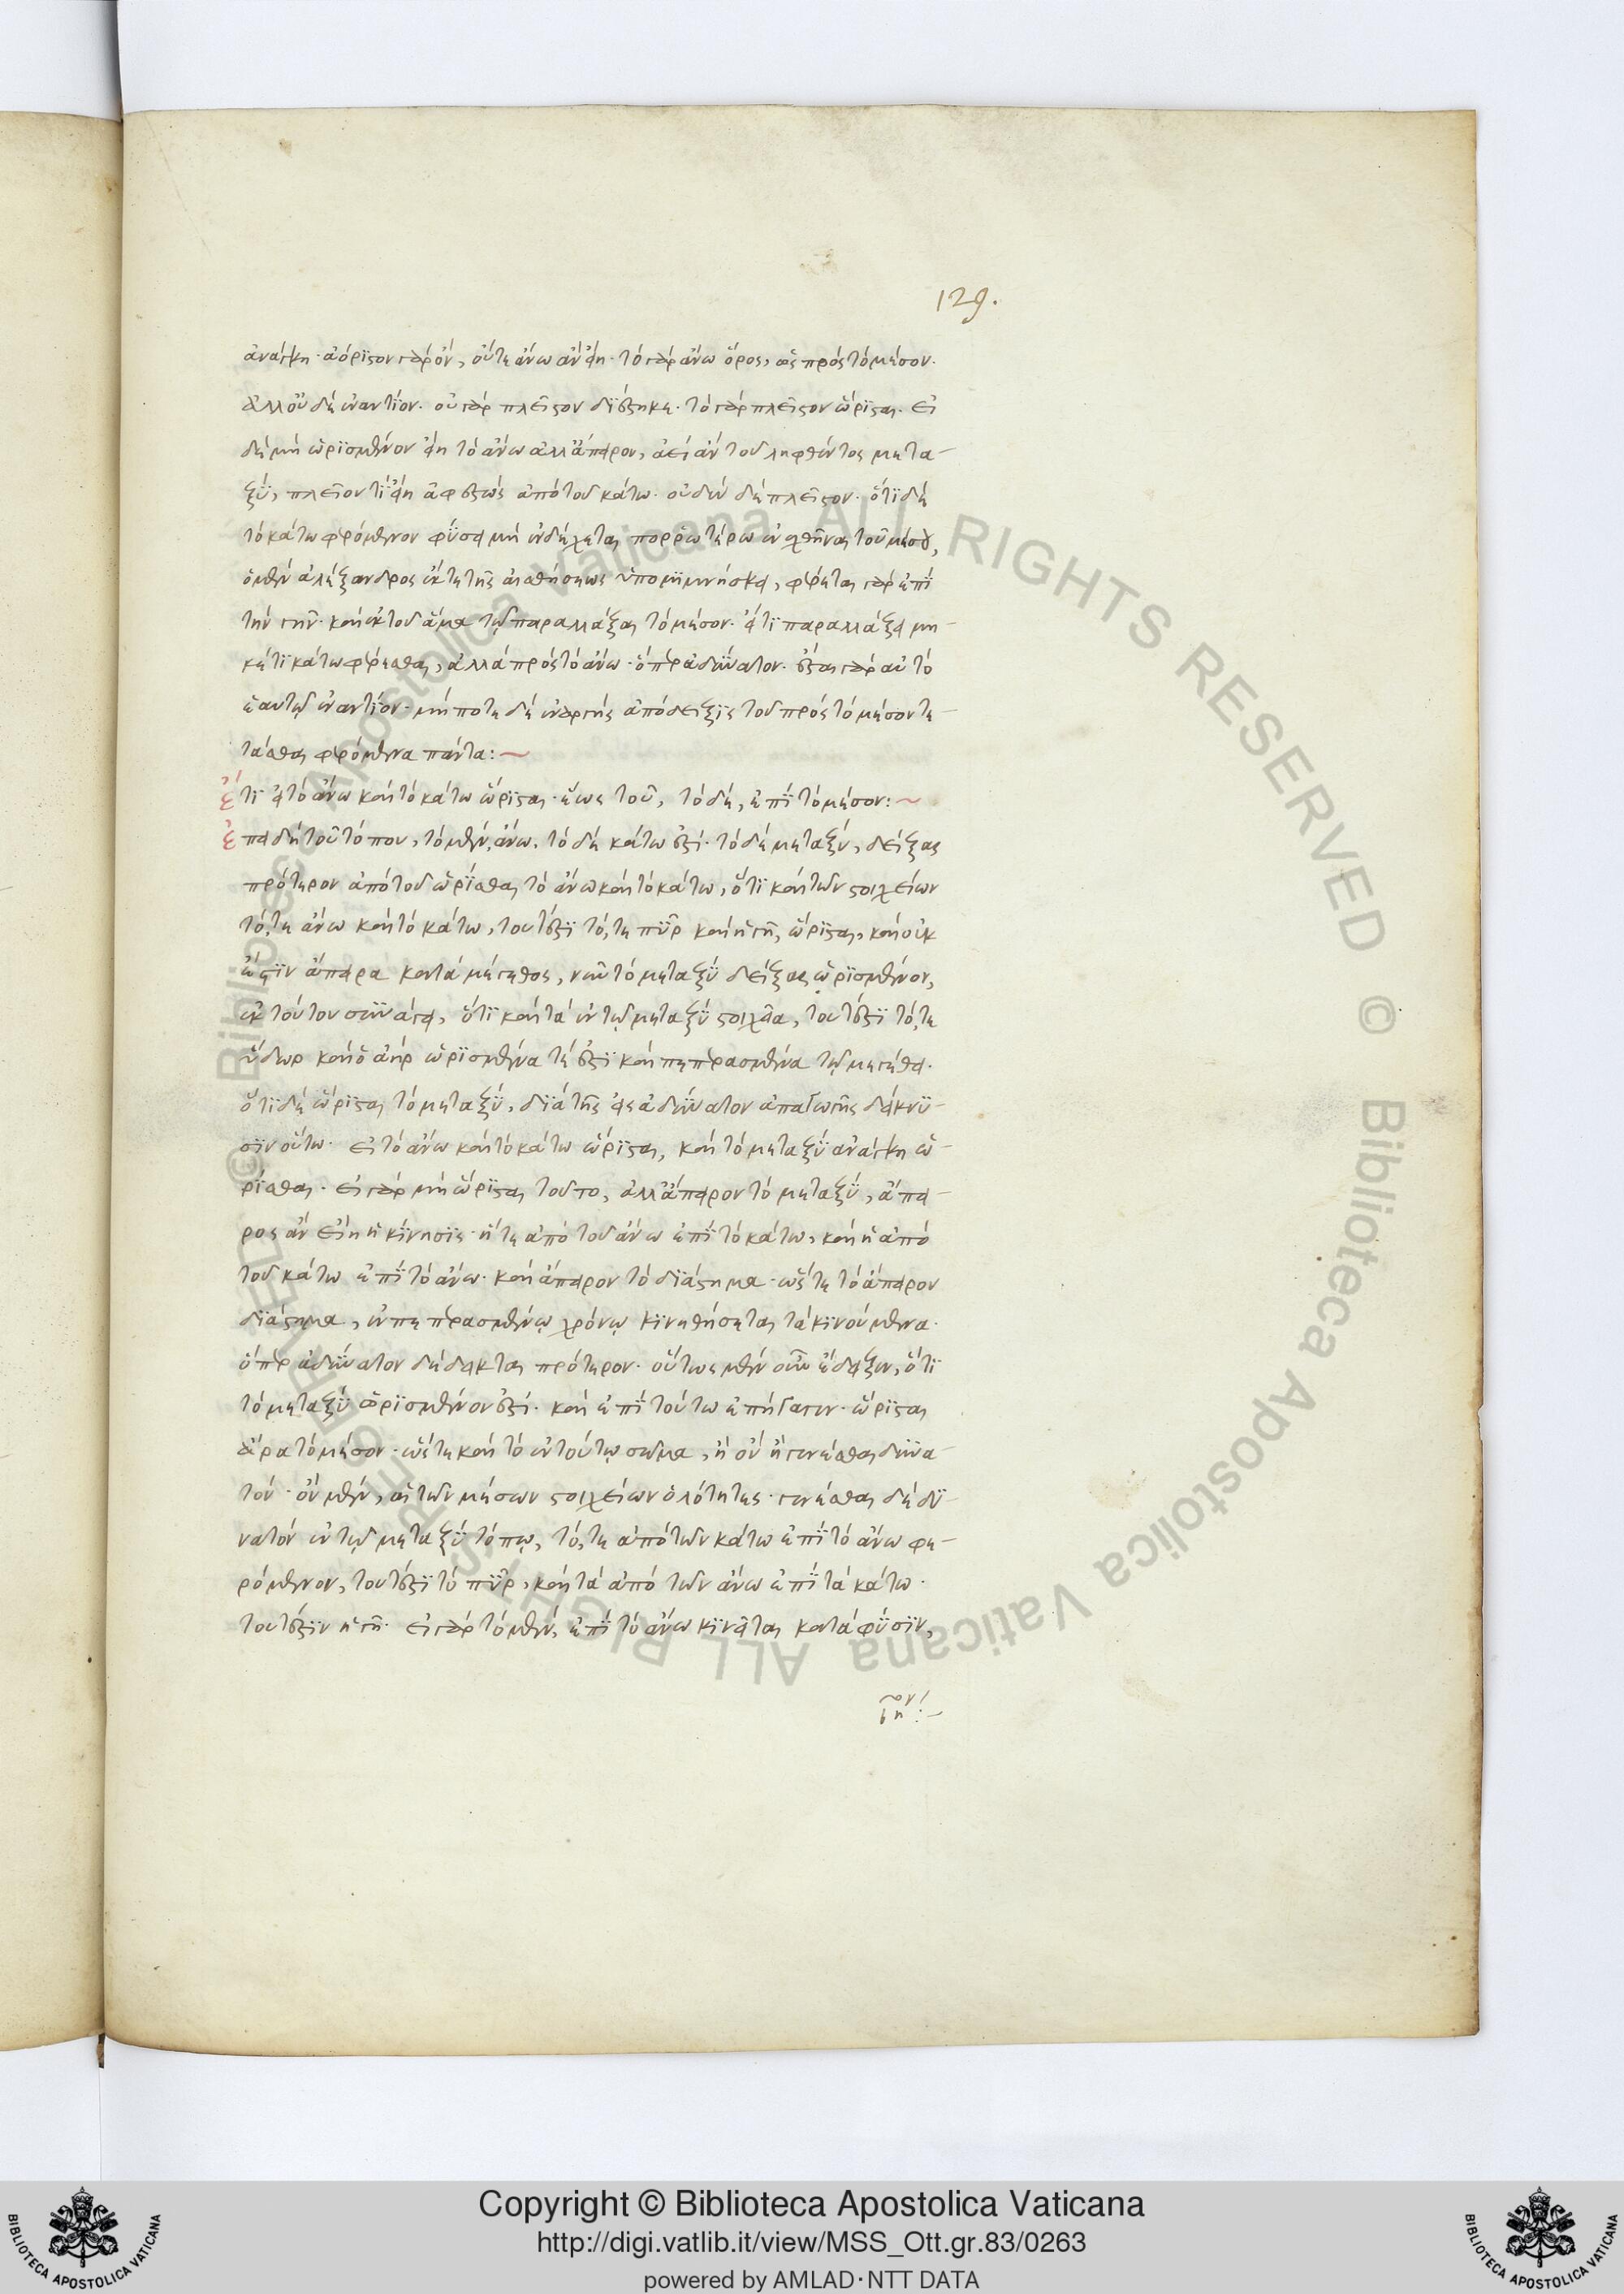 129.
ἀνάγκη· ἀόριστον γὰρ ὄν, οὔτε ἄνω ἂν εἴη· τὸ γὰρ ἄνω ὅρος, ὡς πρὸς τὸ μέσον.
ἀλλ' οὐδὲ ἐναντίον· οὐ γὰρ πλεῖστον διέστηκε· τὸ γὰρ πλεῖστον ὥρισται. εἰ
δὲ μὴ ὡρισμένον εἴη τὸ ἄνω ἀλλ' ἄπειρον, ἀεὶ ἂν τοῦ ληφθέντος μετα-
ξὺ, πλεῖον τι εἴη ἀφεστὼς ἀπὸ τοῦ κάτω. οὐδὲν δὲ πλεῖστον· ὅτι δὲ
τὸ κάτω φερόμενον φύσει μὴ ἐνδέχεται πορρωτέρω ἐνεχθῆναι τοῦ μέσου,
ὁ μὲν ἀλέξανδρος ἔκ τε τῆς αἰσθήσεως ὑπομιμνήσκει, φέρεται γὰρ ἐπὶ
τὴν γῆν· καὶ ἐκ τοῦ ἅμα τῷ παραλλάξαι τὸ μέσον· εἴ τι παραλλάξει μη-
κέτι κάτω φέρεσθαι, ἀλλὰ πρὸς τὸ ἄνω· ὅπερ ἀδύνατον· ἔσται γὰρ αὐτὸ
ἑαυτῷ ἐναντίον· μήποτε δὲ ἐναργὴς ἀπόδειξις τοῦ πρὸς τὸ μέσον τε-
τάσθαι φερόμενα πάντα:
ἔτι εἰ τὸ ἄνω καὶ τὸ κάτω ὥρισται· ἕως τοῦ, τὸ δὲ, ἐπὶ τὸ μέσον:
ἐπειδὴ τοῦ τόπου, τὸ μὲν, ἄνω. τὸ δὲ κάτω ἐστί· τὸ δὲ μεταξύ, δείξας
πρότερον ἀπὸ τοῦ ὡρίσθαι τὸ ἄνω καὶ τὸ κάτω, ὅτι καὶ τῶν στοιχείων
τό, τε ἄνω καὶ τὸ κάτω, τουτέστι τό, τε πῦρ καὶ ἡ γῆ, ὥρισται, καὶ οὐκ
εἰσὶν ἄπειρα κατὰ μέγεθος, νῦν τὸ μεταξὺ δείξας ὡρισμένον,
ἐκ τούτου συνάγει, ὅτι καὶ τὰ ἐν τῷ μεταξὺ στοιχεῖα, τουτέστι τό, τε
ὕδωρ καὶ ὁ ἀὴρ ὡρισμένα τέ ἐστι καὶ πεπερασμένα τῷ μεγέθει.
ὅτι δὲ ὥρισται τὸ μεταξὺ, διὰ τῆς εἰς ἀδύνατον ἀπαγωγῆς δείκνυ-
σιν οὕτω· εἰ τὸ ἄνω καὶ τὸ κάτω ὥρισται, καὶ τὸ μεταξὺ ἀνάγκη ὡ-
ρίσθαι· εἰ γὰρ μὴ ὥρισται τοῦτο, ἀλλ' ἄπειρον τὸ μεταξὺ, ἄπει-
ρος ἂν εἴη ἡ κίνησις· ἥ τε ἀπὸ τοῦ ἄνω ἐπὶ τὸ κάτω, καὶ ἡ ἀπὸ
τοῦ κάτω ἐπὶ τὸ ἄνω· καὶ ἄπειρον τὸ διάστημα· ὥστε τὸ ἄπειρον
διάστημα, ἐν πεπερασμένῳ χρόνῳ κινηθήσεται τὰ κινούμενα.
ὅπερ ἀδύνατον δέδεικται πρότερον· οὕτως μὲν οὖν ἔδειξεν, ὅτι
τὸ μεταξὺ ὡρισμένον ἐστί· καὶ ἐπὶ τούτω ἐπήγαγεν· ὥρισται
ἄρα τὸ μέσον· ὥστε καὶ τὸ ἐν τούτῳ σῶμα, ἢ ὂν ἢ γενέσθαι δυνα-
τόν· ὂν μὲν, αἱ τῶν μέσων στοιχείων ὁλότητες· γενέσθαι δὲ δυ-
νατὸν ἐν τῷ μεταξὺ τόπῳ, τό, τε ἀπὸ τῶν κάτω ἐπὶ τὸ ἄνω φε-
ρόμενον, τουτέστι τὸ πῦρ, καὶ τὰ ἀπὸ τῶν ἄνω ἐπὶ τὰ κάτω.
τουτέστιν ἡ γῆ· εἰ γὰρ τὸ μὲν, ἐπὶ τὸ ἄνω κινεῖται κατὰ φύσιν,
© Biblioteca Apostolica Vaticana ALL RIGHTS RESERVED © Biblioteca Apostolica Vaticana ALL RIGHTS RESERVED
Copyright © Biblioteca Apostolica Vaticana
http://digi.vatlib.it/view/MSS_Ott.gr.83/0263
powered by AMLAD·NTT DATA
BIBLIOTECA APOSTOLICA VATICANA
BIBLIOTECA APOSTOLICA VATICANA